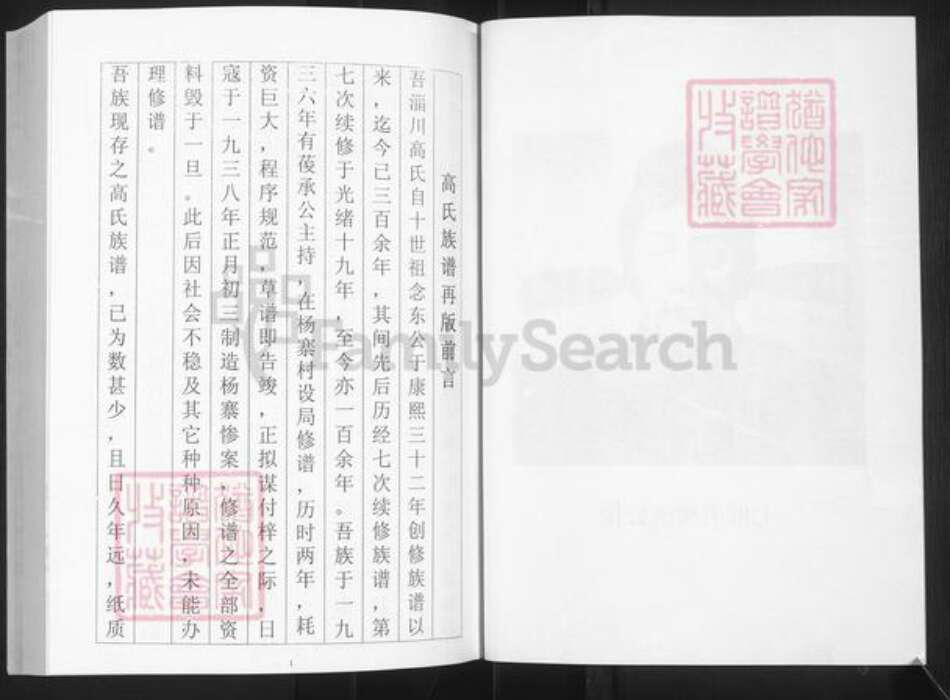 高氏族谱再版前言
吾淄川高氏自十世祖念东公于康熙三十二年创修族谱以
来，迄今已三百余年，其间先后历经七次续修族谱，第
七次续修于光绪十九年，至今亦一百余年。吾族于一九
三六年有葰承公主持，在杨寨村设局修谱，历时两年，耗
资巨大，程序规范，草谱即告竣，正拟谋付梓之际，日
寇于一九三八年正月初三制造杨寨惨案，修谱之全部资
料毁于一旦。此后因社会不稳及其它种种原因，未能办
理修谱。
吾族现存之高氏族谱，已为数甚少，且日久年远，纸质
1
FamilySearch
猶他家
譜學會
收藏
猶他家
譜學會
收藏